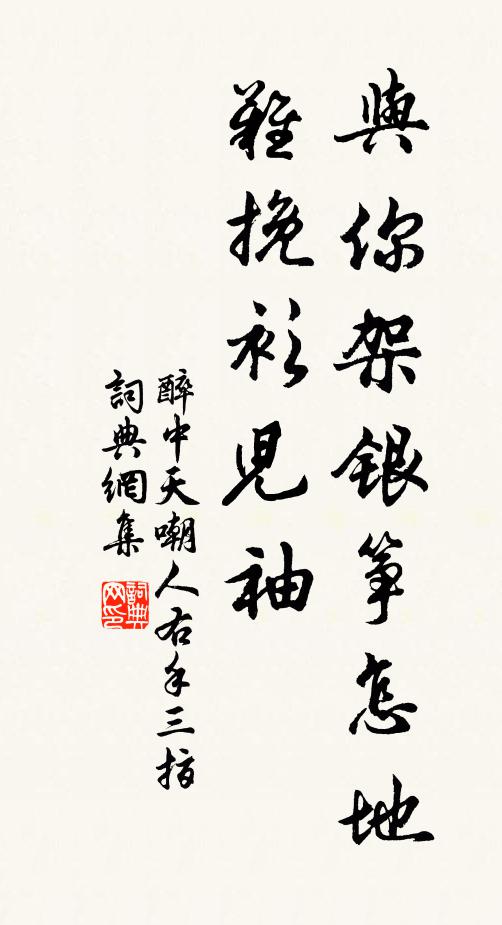 與你架銀箏怎地
難挽衫兒袖
醉中天嘲人右手三指
詞典網集
詞典网印